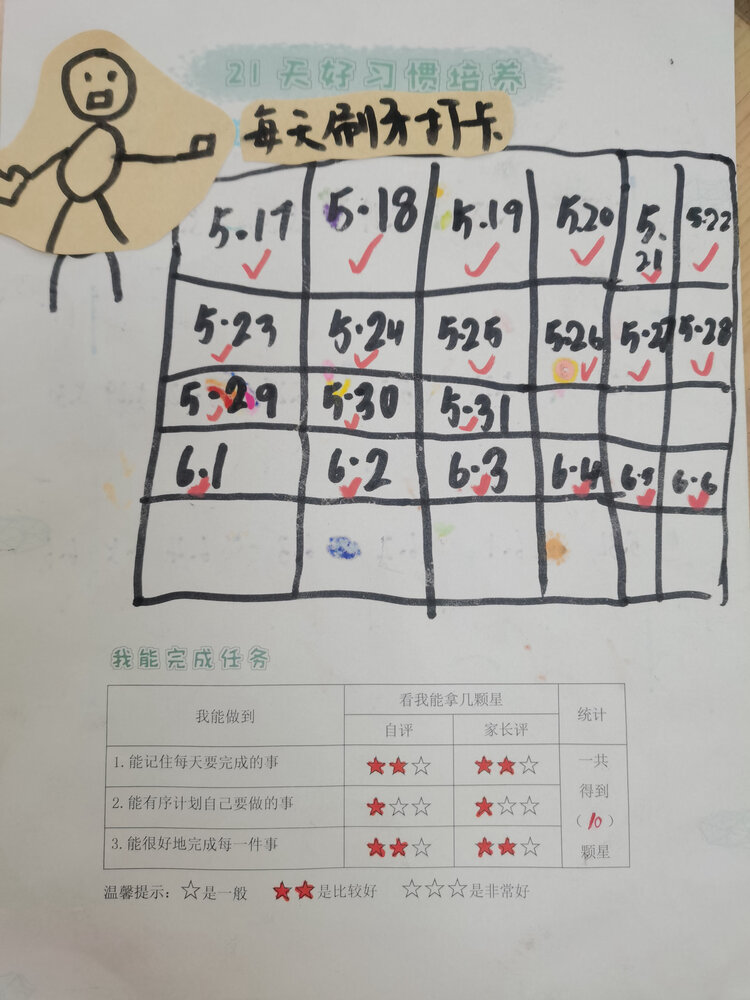 21天好习惯培养
每天刷牙打卡
5.17 5.18 5.19 5.20 5.21 5.22
5.23 5.24 5.25 5.26 5.27 5.28
5.29 5.30 5.31
6.1 6.2 6.3 6.4 6.5 6.6
我能完成任务
我能做到 看我能拿几颗星 统计
自评 家长评
1.能记住每天要完成的事 ★★☆ ★★☆ 一共
得到
2.能有序计划自己要做的事 ★☆☆ ★☆☆
(10)
3.能很好地完成每一件事 ★★☆ ★★☆ 颗星
温馨提示:☆是一般 ★★是比较好 ☆☆☆是非常好